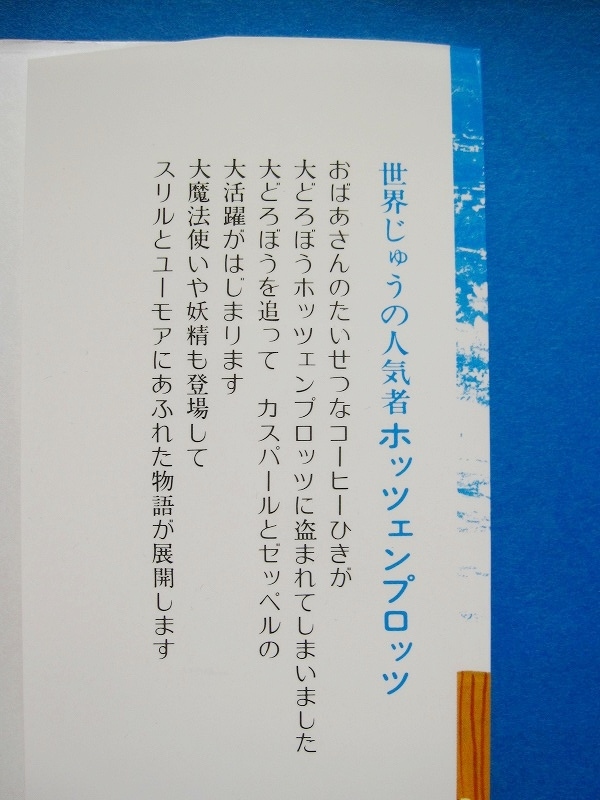 世界じゅうの人気者ホッツェンプロッツ
おばあさんのたいせつなコーヒーひきが
大どろぼうホッツェンプロッツに盗まれてしまいました
大どろぼうを追って　カスパールとゼッペルの
大活躍がはじまります
大魔法使いや妖精も登場して
スリルとユーモアにあふれた物語が展開します